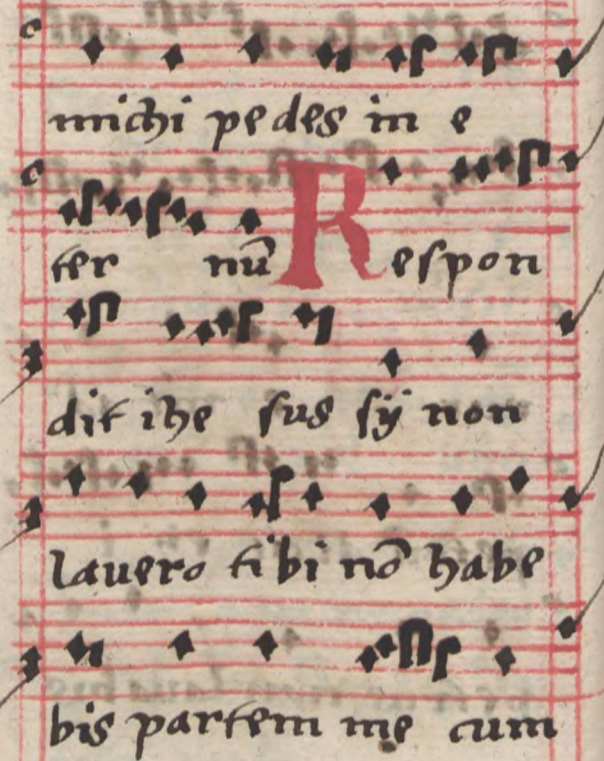 michi pedes in e
ter nū Respon
dit ihe sus sÿ non
lauero tibi nō habe
bis partem me cum